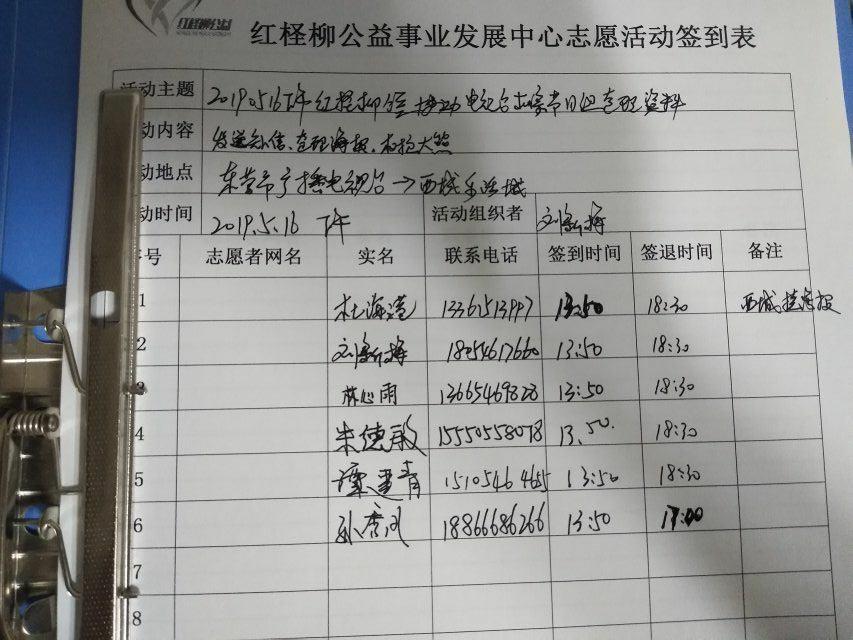 红柽柳公益
红柽柳公益事业发展中心志愿活动签到表
活动主题 2019.5.16下午红柽柳 电视台 节目组 整理资料
动内容 整理海报、
动地点 东营市广播电视台→西城
动时间 2019.5.16 下午 活动组织者
号 志愿者网名 实名 联系电话 签到时间 签退时间 备注
1 杜海清 13361513997 13:50 18:30 西城 海报
2 18254617660 13:50 18:30
3 林心雨 13665469828 13:50 18:30
4 朱德敏 15550558078 13.50. 18:30
5 谭 青 1510546 465 13:50 18:30
6 孙秀凤 18866686266 13:50 17:00
7
8